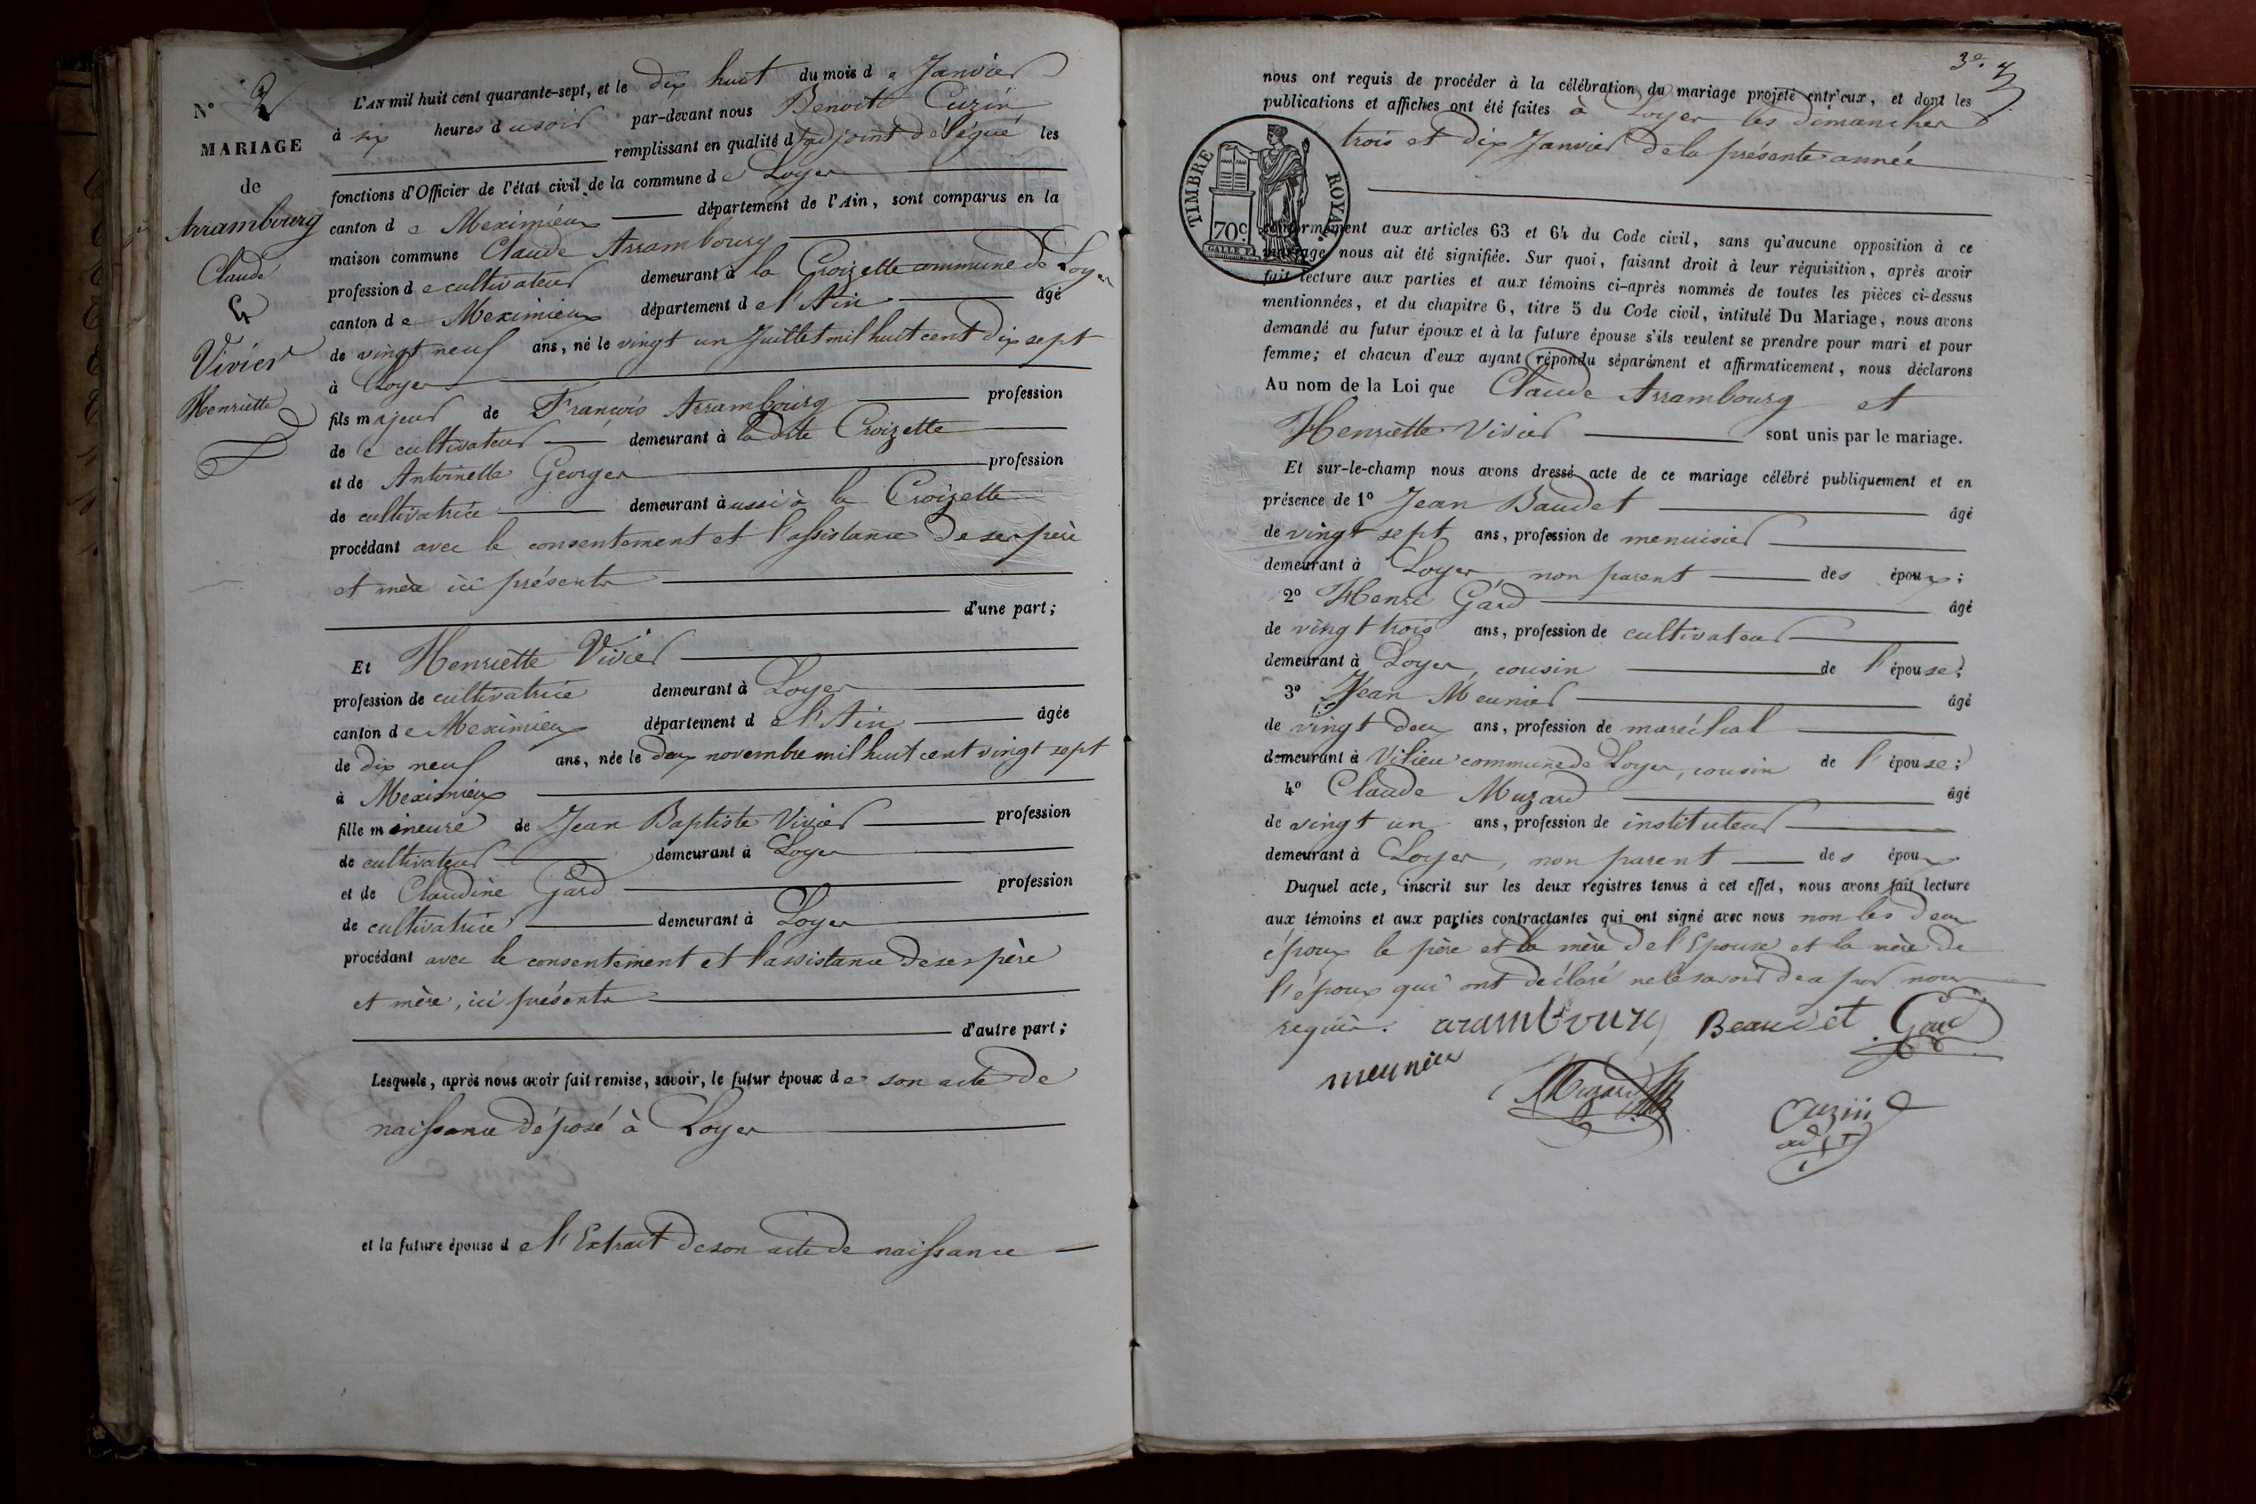 N° 2
MARIAGE
de
Arrambourg
Claude
&
Vivier
Henriette
L'AN mil huit cent quarante-sept, et le dix huit du mois de Janvier
à six heures du soir par-devant nous Benoit Cuzin
remplissant en qualité d'adjoint délégué les
fonctions d'Officier de l'état civil de la commune de Loyes
canton de Meximieux département de l'Ain, sont comparus en la
maison commune Claude Arrambourg
profession de cultivateur demeurant à la Croizette commune de Loyes
canton de Meximieux département de l'Ain âgé
de vingt neuf ans, né le vingt un Juillet mil huit cent dix sept
à Loyes
fils majeur de François Arrambourg profession
de cultivateur demeurant à ladite Croizette
et de Antoinette Georges profession
de cultivatrice demeurant à aussi à la Croizette
procédant avec le consentement et l'assistance de ses père
et mère ici présents
d'une part;
Et Henriette Vivier
profession de cultivatrice demeurant à Loyes
canton de Meximieux département de l'Ain âgée
de dix neuf ans, née le deux novembre mil huit cent vingt sept
à Meximieux
fille mineure de Jean Baptiste Vivier profession
de cultivateur demeurant à Loyes
et de Claudine Gard profession
de cultivatrice demeurant à Loyes
procédant avec le consentement et l'assistance de ses père
et mère, ici présents
d'autre part;
Lesquels, après nous avoir fait remise, savoir, le futur époux de son acte de
naissance déposé à Loyes
et la future épouse de l'Extrait de son acte de naissance
3e.
nous ont requis de procéder à la célébration du mariage projeté entr'eux, et dont les
publications et affiches ont été faites à Loyes les dimanches
trois et dix Janvier de la présente année
TIMBRE ROYAL
70c
conformément aux articles 63 et 64 du Code civil, sans qu'aucune opposition à ce
mariage nous ait été signifiée. Sur quoi, faisant droit à leur réquisition, après avoir
fait lecture aux parties et aux témoins ci-après nommés de toutes les pièces ci-dessus
mentionnées, et du chapitre 6, titre 5 du Code civil, intitulé Du Mariage, nous avons
demandé au futur époux et à la future épouse s'ils veulent se prendre pour mari et pour
femme; et chacun d'eux ayant répondu séparément et affirmativement, nous déclarons
Au nom de la Loi que Claude Arrambourg et
Henriette Vivier sont unis par le mariage.
Et sur-le-champ nous avons dressé acte de ce mariage célébré publiquement et en
présence de 1° Jean Baudet âgé
de vingt sept ans, profession de menuisier
demeurant à Loyes non parent des époux;
2° Henri Gard âgé
de vingt trois ans, profession de cultivateur
demeurant à Loyes, cousin de l'épouse;
3° Jean Meunier âgé
de vingt deux ans, profession de maréchal
demeurant à Vilieu commune de Loyes, cousin de l'épouse;
4° Claude Muzard âgé
de vingt un ans, profession de instituteur
demeurant à Loyes, non parent des époux
Duquel acte, inscrit sur les deux registres tenus à cet effet, nous avons fait lecture
aux témoins et aux parties contractantes qui ont signé avec nous non les deux
époux le père et la mère de l'Epouse et la mère de
l'époux qui ont déclaré ne le savoir de ce par nous
requis. arambourg Beaudet Gard
meunier Muzard Cuzin
adjt